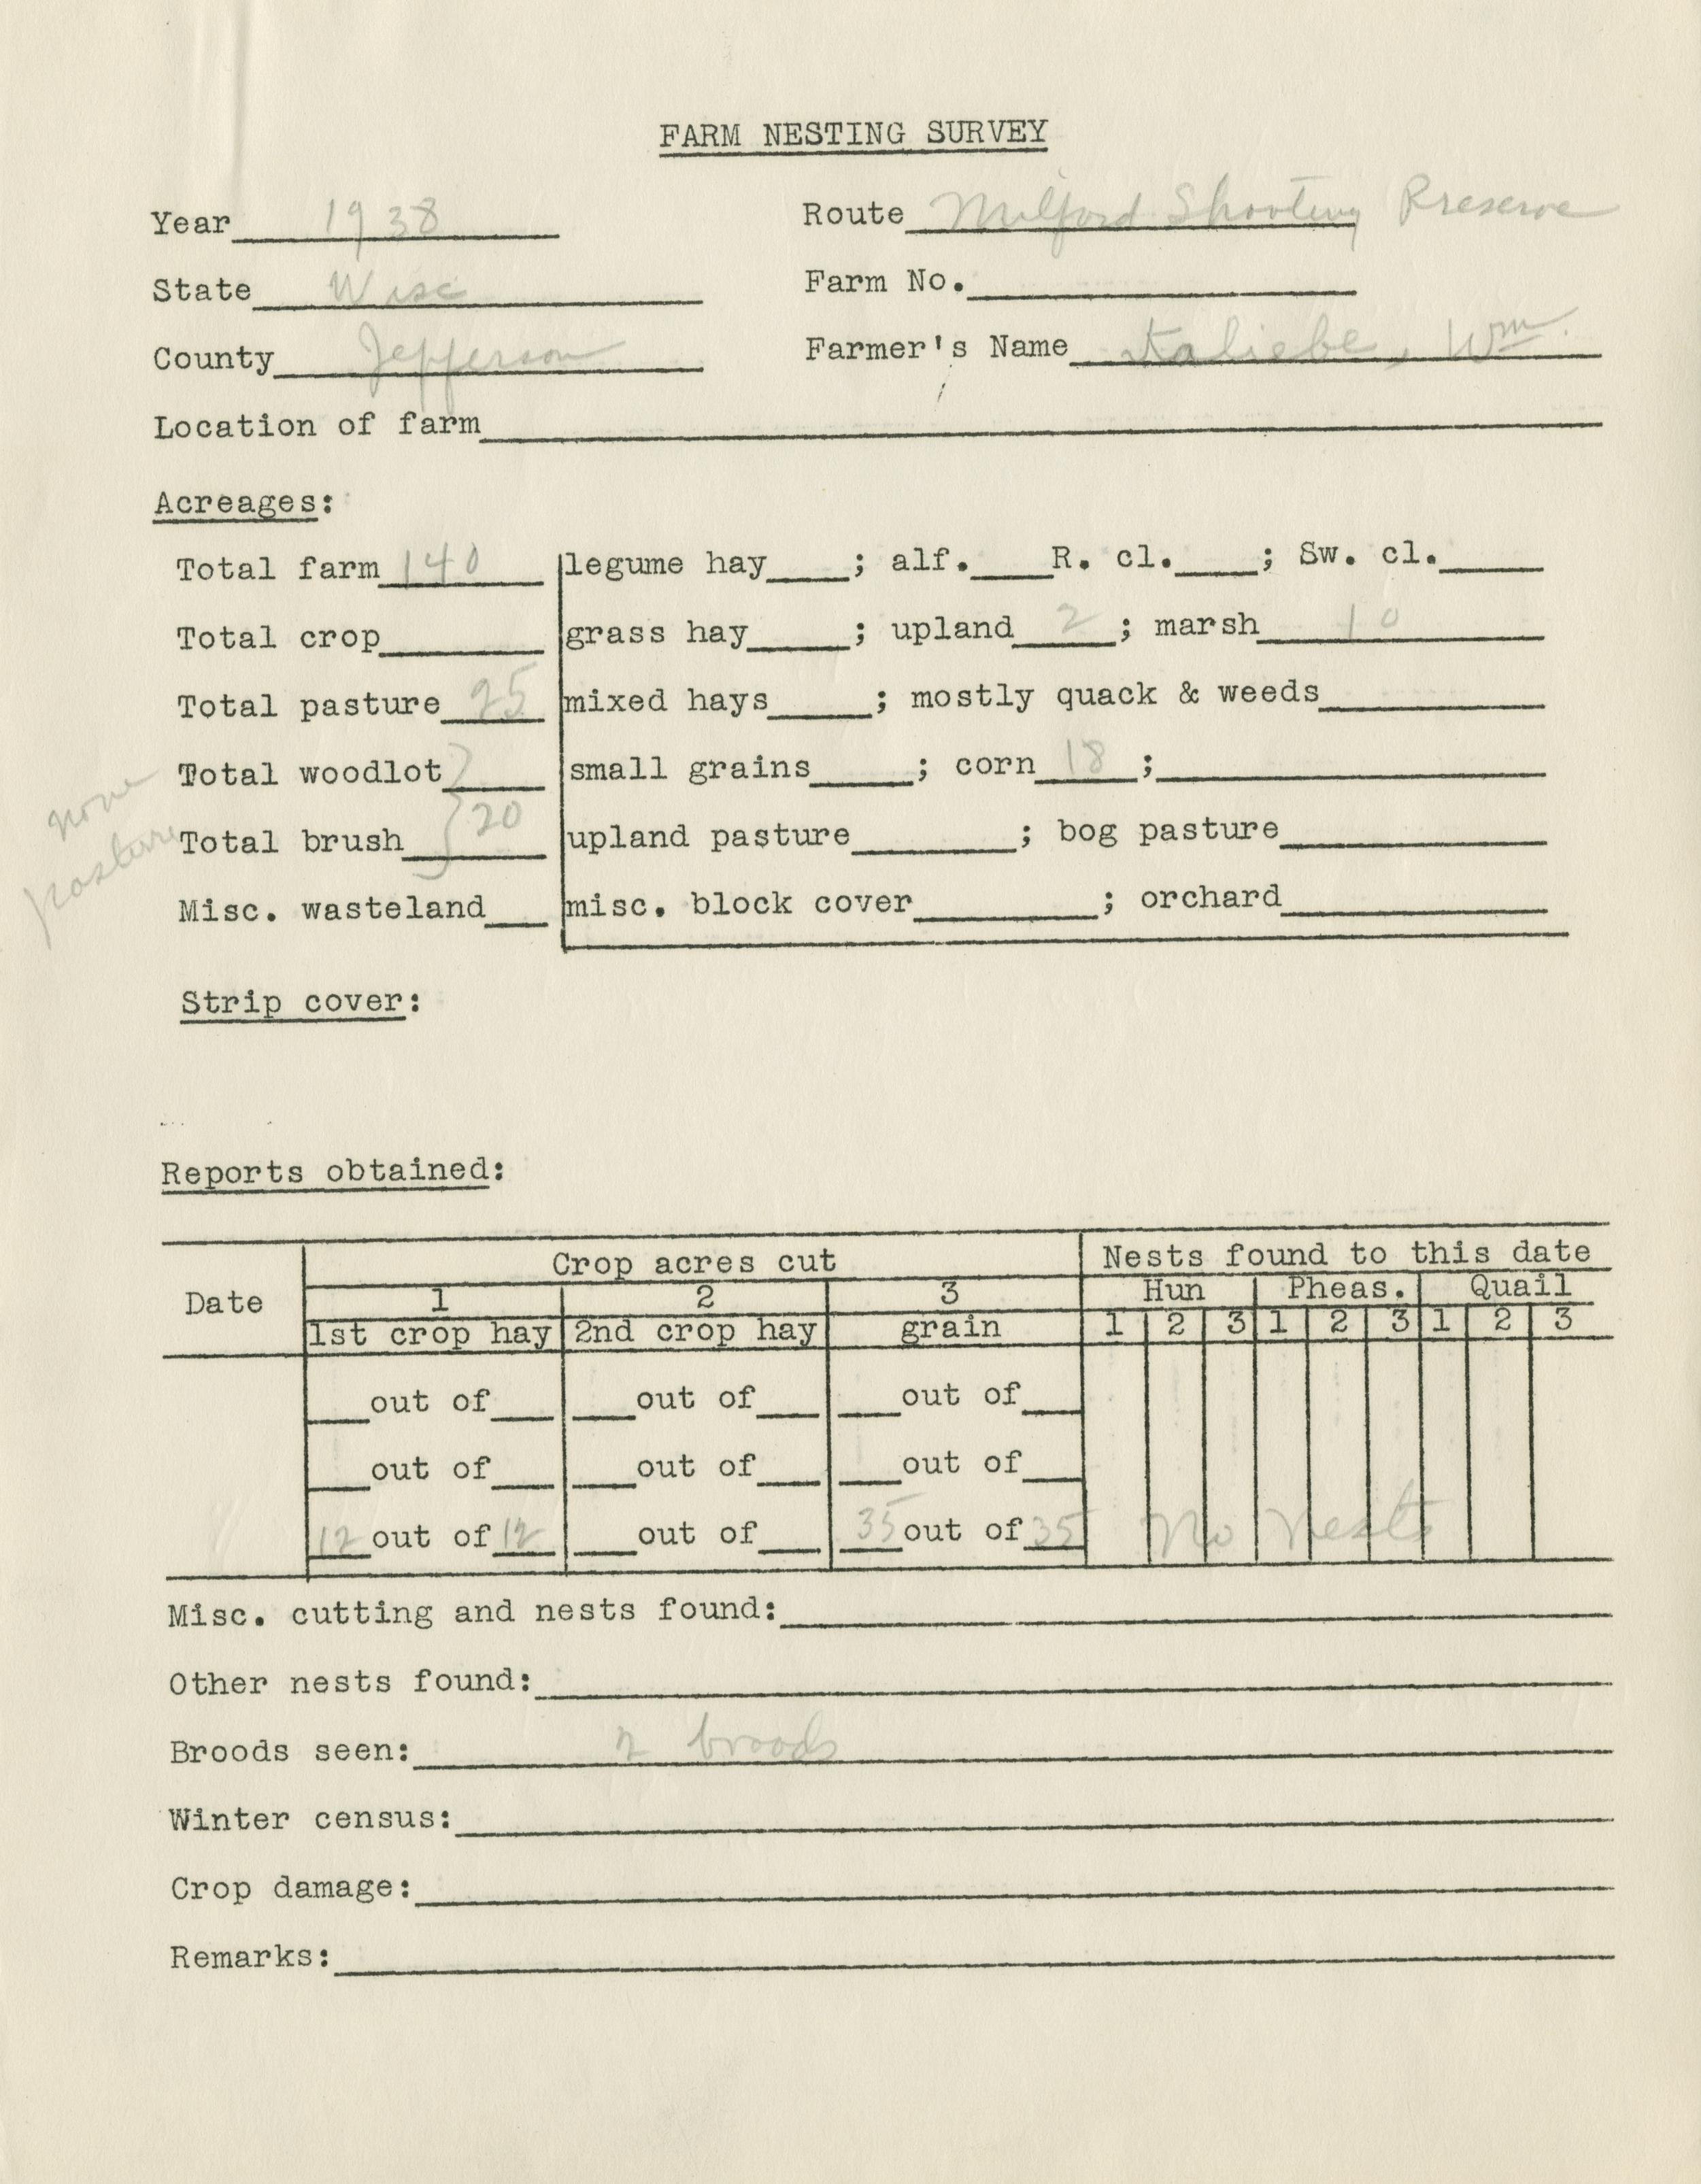 FARM NESTING SURVEY
Year 1938 Route Milford Shooting Preserve
State Wisc Farm No.
County Jefferson Farmer's Name Kaliebe, Wm.
Location of farm
Acreages:
Total farm 140 legume hay ; alf. R. cl. ; Sw. cl.
Total crop grass hay ; upland 2 ; marsh 10
Total pasture 25 mixed hays ; mostly quack & weeds
Total woodlot small grains ; corn 18 ;
none
pasture
Total brush } 20 upland pasture ; bog pasture
Misc. wasteland misc. block cover ; orchard
Strip cover:
Reports obtained:
Date Crop acres cut Nests found to this date
1 2 3 Hun Pheas. Quail
1st crop hay 2nd crop hay grain 1 2 3 1 2 3 1 2 3
out of out of out of
out of out of out of
12 out of 12 out of 35 out of 35 No nests
Misc. cutting and nests found:
Other nests found:
Broods seen: 2 broods
Winter census:
Crop damage:
Remarks: